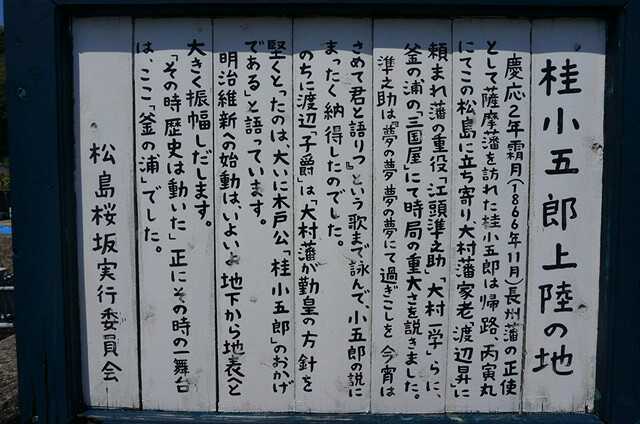 桂小五郎上陸の地
慶応2年霜月(1866年11月)長州藩の正使
として薩摩藩を訪れた桂小五郎は帰路、丙寅丸
にてこの松島に立ち寄り大村藩家老「渡辺昇」に
頼まれ藩の重役「江頭準之助」「大村一学」らに、
釜の浦の三国屋」にて時局の重大さを説きました。
準之助は『夢の夢 夢の夢にて過ぎこしを 今宵は
さめて君と語りつ』という歌まで詠んで小五郎の説に
まったく納得したのでした。
のちに渡辺「子爵」は「大村藩が勤皇の方針を
堅くとったのは、大いに木戸公「桂小五郎」のおかげ
である」と語っています。
明治維新への始動は、いよいよ 地下から地表へと
大きく振幅しだします。
「その時歴史は動いた」正にその時の一舞台
は、ここ「釜の浦」でした。
松島桜坂実行委員会